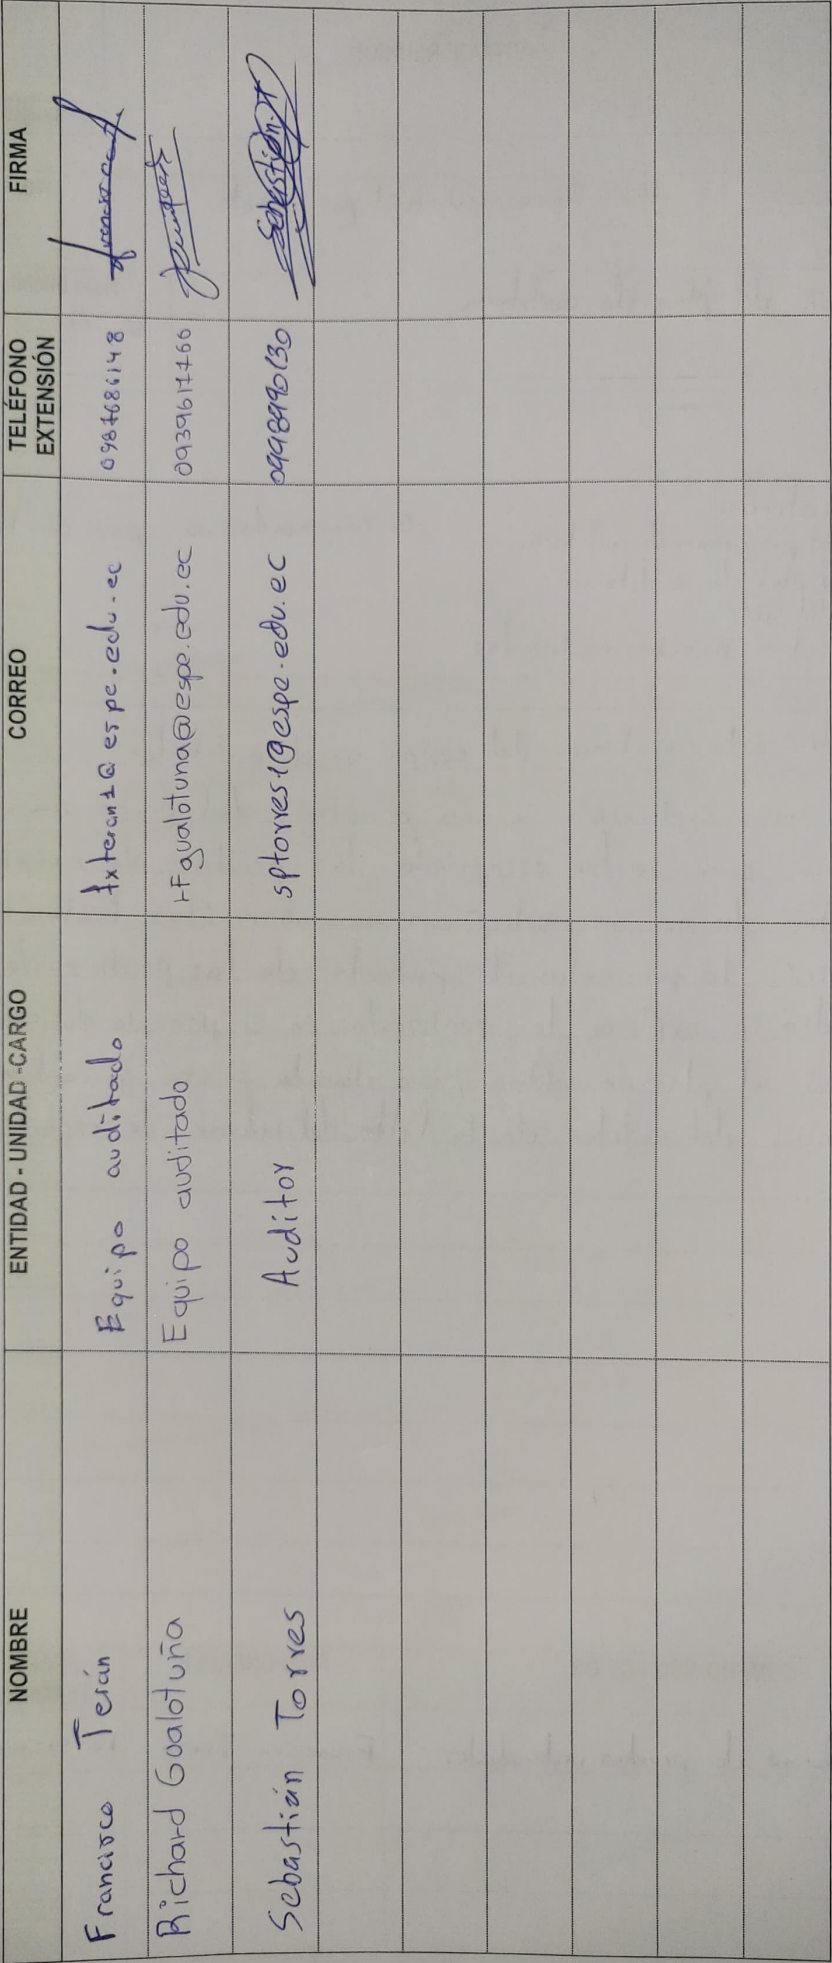 NOMBRE ENTIDAD - UNIDAD -CARGO CORREO TELÉFONO EXTENSIÓN FIRMA
Francisco Terán Equipo auditado fxteran1@espe.edu.ec 0987686148
Richard Gualotuña Equipo auditado rfgualotuna@espe.edu.ec 0939617766
Sebastián Torres Auditor sptorres1@espe.edu.ec 0998990130 Sebastián.T